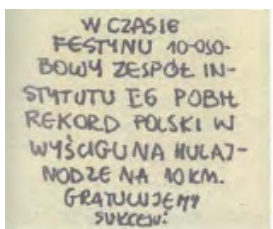 W CZASIE
FESTYNU 10-OSO-
BOWY ZESPÓŁ IN-
STYTUTU EG POBIŁ
REKORD POLSKI W
WYŚCIGU NA HULAJ-
NODZE NA 10 KM.
GRATULUJEMY
SUKCESU.